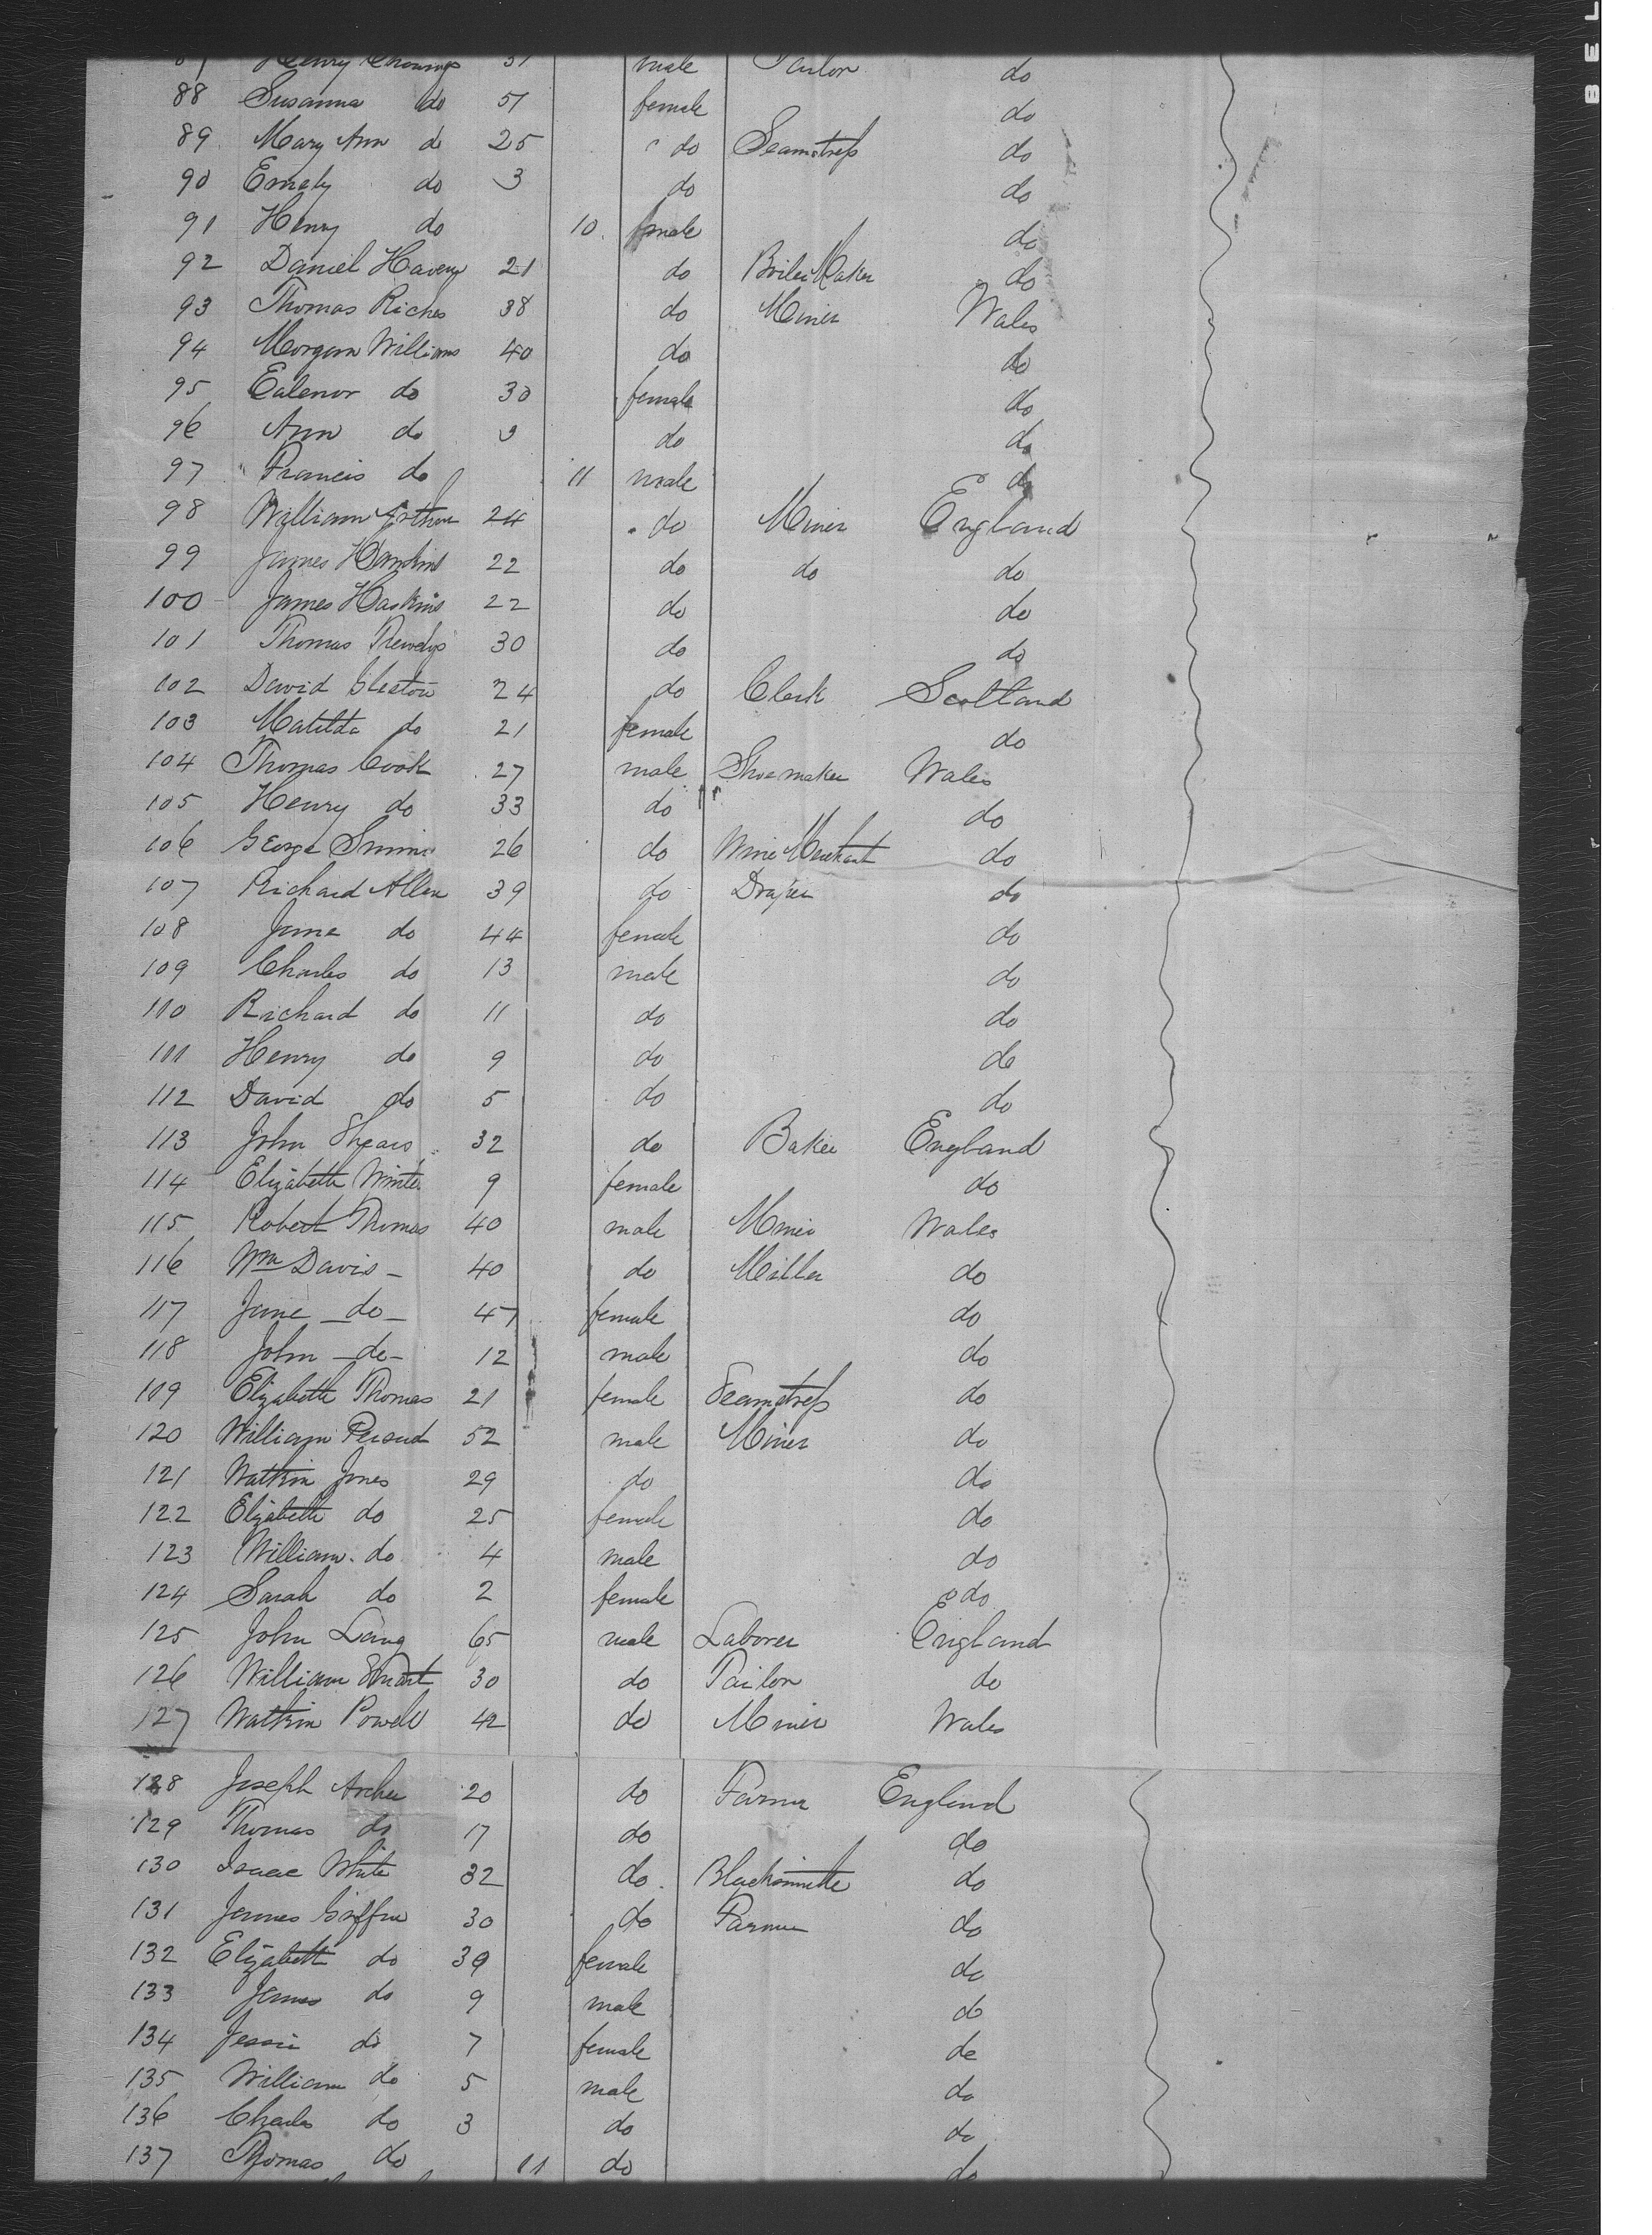 male Tailor do
88 Susanna do 51 female do
89 Mary Ann do 25 do Seamstress do
90 Emely do 3 do do
91 Henry do 10 male do
92 Daniel 21 do Boiler Maker do
93 Thomas Riches 38 do Miner Wales
94 Morgan Williams 40 do do
95 Ealenor do 30 female do
96 Ann do 9 do do
97 Francis do 11 male do
98 William 24 do Miner England
99 James 22 do do do
100 James Haskins 22 do do
101 Thomas 30 do do
102 David 24 do Clerk Scotland
103 Matilda do 21 female do
104 Thomas Cook 27 male Shoemaker Wales
105 Henry do 33 do do
106 George 26 do Wine Merchant do
107 Richard Allen 39 do Draper do
108 Jane do 44 female do
109 Charles do 13 male do
110 Richard do 11 do do
111 Henry do 9 do do
112 David do 5 do do
113 John Shears 32 do Baker England
114 Elizabeth Winter 9 female do
115 Robert Thomas 40 male Miner Wales
116 Wm Davis - 40 do Miller do
117 Jane - do - 47 female do
118 John - do - 12 male do
119 Elizabeth Thomas 21 female Seamstress do
120 William 52 male Miner do
121 Watkin Jones 29 do do
122 Elizabeth do 25 female do
123 William do 4 male do
124 Sarah do 2 female do
125 John Lang 65 male Laborer England
126 William Smart 30 do Tailor do
127 Watkin Powell 42 do Miner Wales
128 Joseph Archer 20 do Farmer England
129 Thomas do 17 do do
130 Isaac White 32 do Blacksmith do
131 James Griffin 30 do Farmer do
132 Elizabeth do 39 female do
133 James do 9 male do
134 Jessie do 7 female do
135 William do 5 male do
136 Charles do 3 do do
137 Thomas do 11 do do
BEL